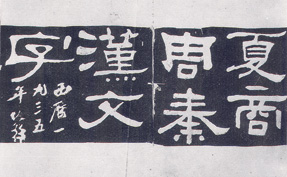 夏商
周秦
漢文
字
西曆一
九三五
年